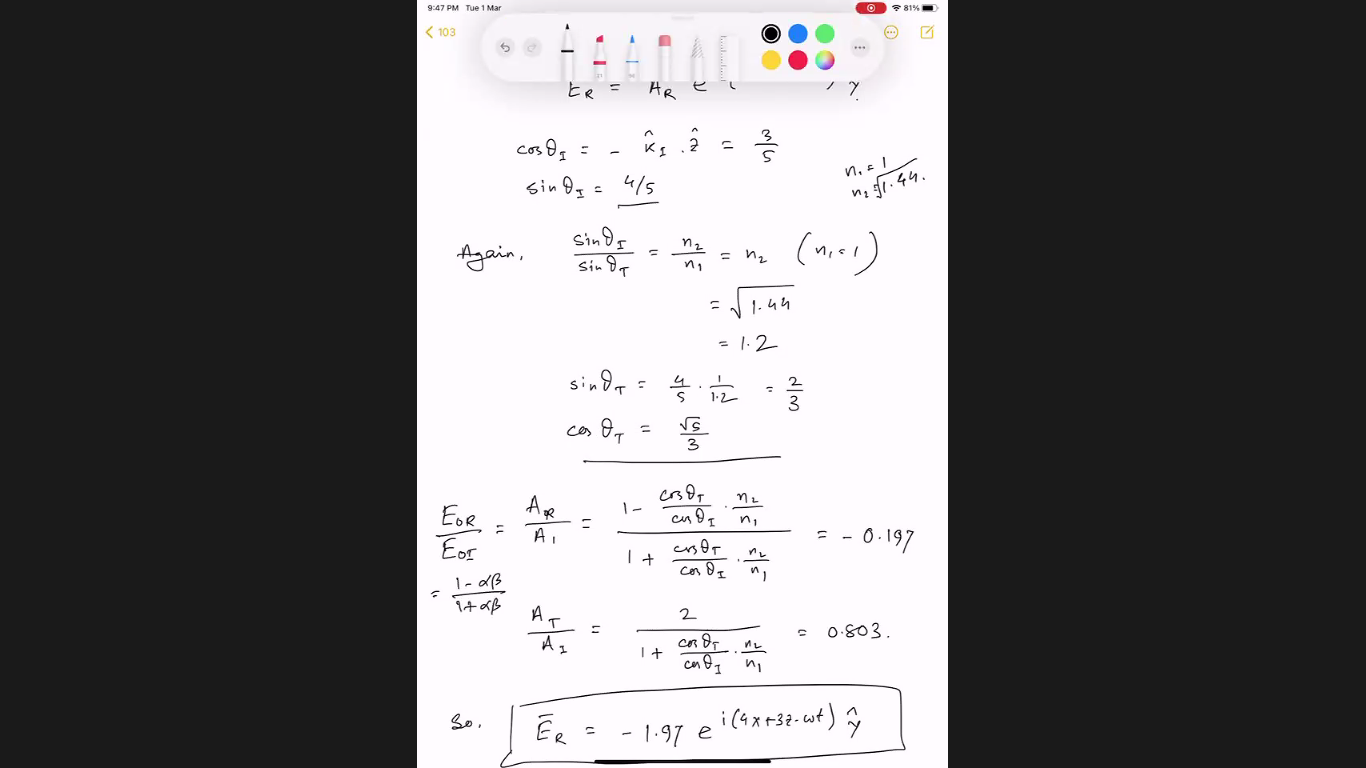 9:47 PM Tue 1 Mar
81%
103
E_R = A_R e^i( ) ŷ
cosθ_I = - k̂_I . ẑ = 3/5
sinθ_I = 4/5
n₁ = 1
n₂ = √1.44.
Again, sinθ_I/sinθ_T = n₂/n₁ = n₂ (n₁ = 1)
= √1.44
= 1.2
sinθ_T = 4/5 · 1/1.2 = 2/3
cosθ_T = √5/3
E_OR/E_OI = A_R/A_I = (1 - cosθ_T/cosθ_I · n₂/n₁)/(1 + cosθ_T/cosθ_I · n₂/n₁) = - 0.197
= (1-αβ)/(1+αβ)
A_T/A_I = 2/(1 + cosθ_T/cosθ_I · n₂/n₁) = 0.803.
So, Ē_R = - 1.97 e^i(4x+3z-ωt) ŷ